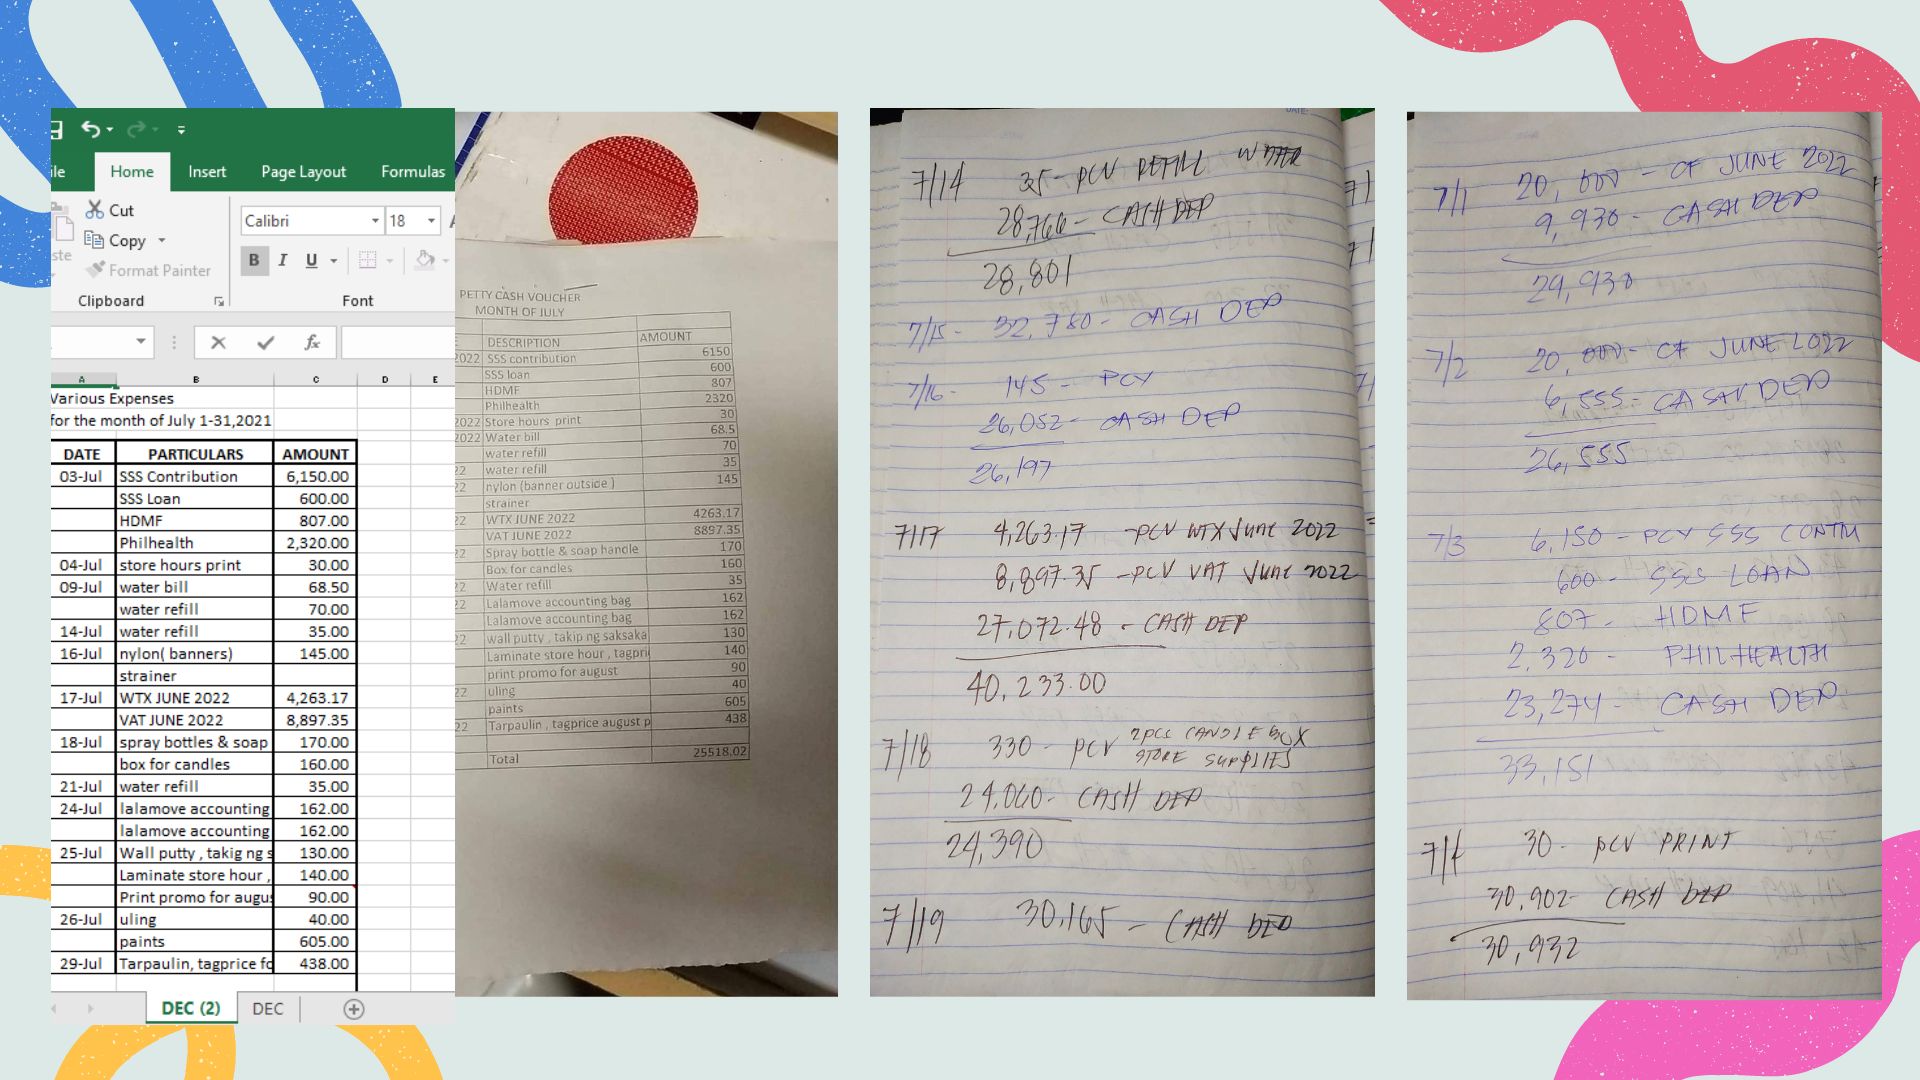 Home Insert Page Layout Formulas
Cut
Copy
Format Painter
Clipboard
Calibri 18
B I U
Font
fx
A B C D E
Various Expenses
for the month of July 1-31,2021
DATE PARTICULARS AMOUNT
03-Jul SSS Contribution 6,150.00
SSS Loan 600.00
HDMF 807.00
Philhealth 2,320.00
04-Jul store hours print 30.00
09-Jul water bill 68.50
water refill 70.00
14-Jul water refill 35.00
16-Jul nylon( banners) 145.00
strainer
17-Jul WTX JUNE 2022 4,263.17
VAT JUNE 2022 8,897.35
18-Jul spray bottles & soap 170.00
box for candles 160.00
21-Jul water refill 35.00
24-Jul lalamove accounting 162.00
lalamove accounting 162.00
25-Jul Wall putty , takig ng s 130.00
Laminate store hour , 140.00
Print promo for augus 90.00
26-Jul uling 40.00
paints 605.00
29-Jul Tarpaulin, tagprice fo 438.00
DEC (2) DEC
PETTY CASH VOUCHER
MONTH OF JULY
DESCRIPTION AMOUNT
2022 SSS contribution 6150
SSS loan 600
HDMF 807
Philhealth 2320
2022 Store hours print 30
2022 Water bill 68.5
water refill 70
22 water refill 35
22 nylon (banner outside ) 145
strainer
22 WTX JUNE 2022 4263.17
VAT JUNE 2022 8897.35
22 Spray bottle & soap handle 170
Box for candles 160
22 Water refill 35
22 Lalamove accounting bag 162
Lalamove accounting bag 162
22 wall putty , takip ng saksaka 130
Laminate store hour , tagpri 140
print promo for august 90
22 uling 40
paints 605
22 Tarpaulin , tagprice august p 438
Total 25518.02
DATE:
7/14 35- PCV REFILL WATER
28,766- CASH DEP
28,801
7/15- 32,780- CASH DEP
7/16- 145- PCV
26,052- CASH DEP
26,197
7/17 4,263.17 -PCV WTX June 2022
8,897.35 -PCV VAT June 2022
27,072.48 - CASH DEP
40,233.00
7/18 330- PCV 2PCS CANDLE BOX
STORE SUPPLIES
24,060- CASH DEP
24,390
7/19 30,165- CASH DEP
7/1 20,000- CF JUNE 2022
9,930- CASH DEP
29,930
7/2 20,000- CF JUNE 2022
6,555- CASH DEP
26,555
7/3 6,150- PCV SSS CONTRI
600- SSS LOAN
807- HDMF
2,320- PHILHEALTH
23,274- CASH DEP
33,151
7/4 30- PCV PRINT
30,902- CASH DEP
30,932